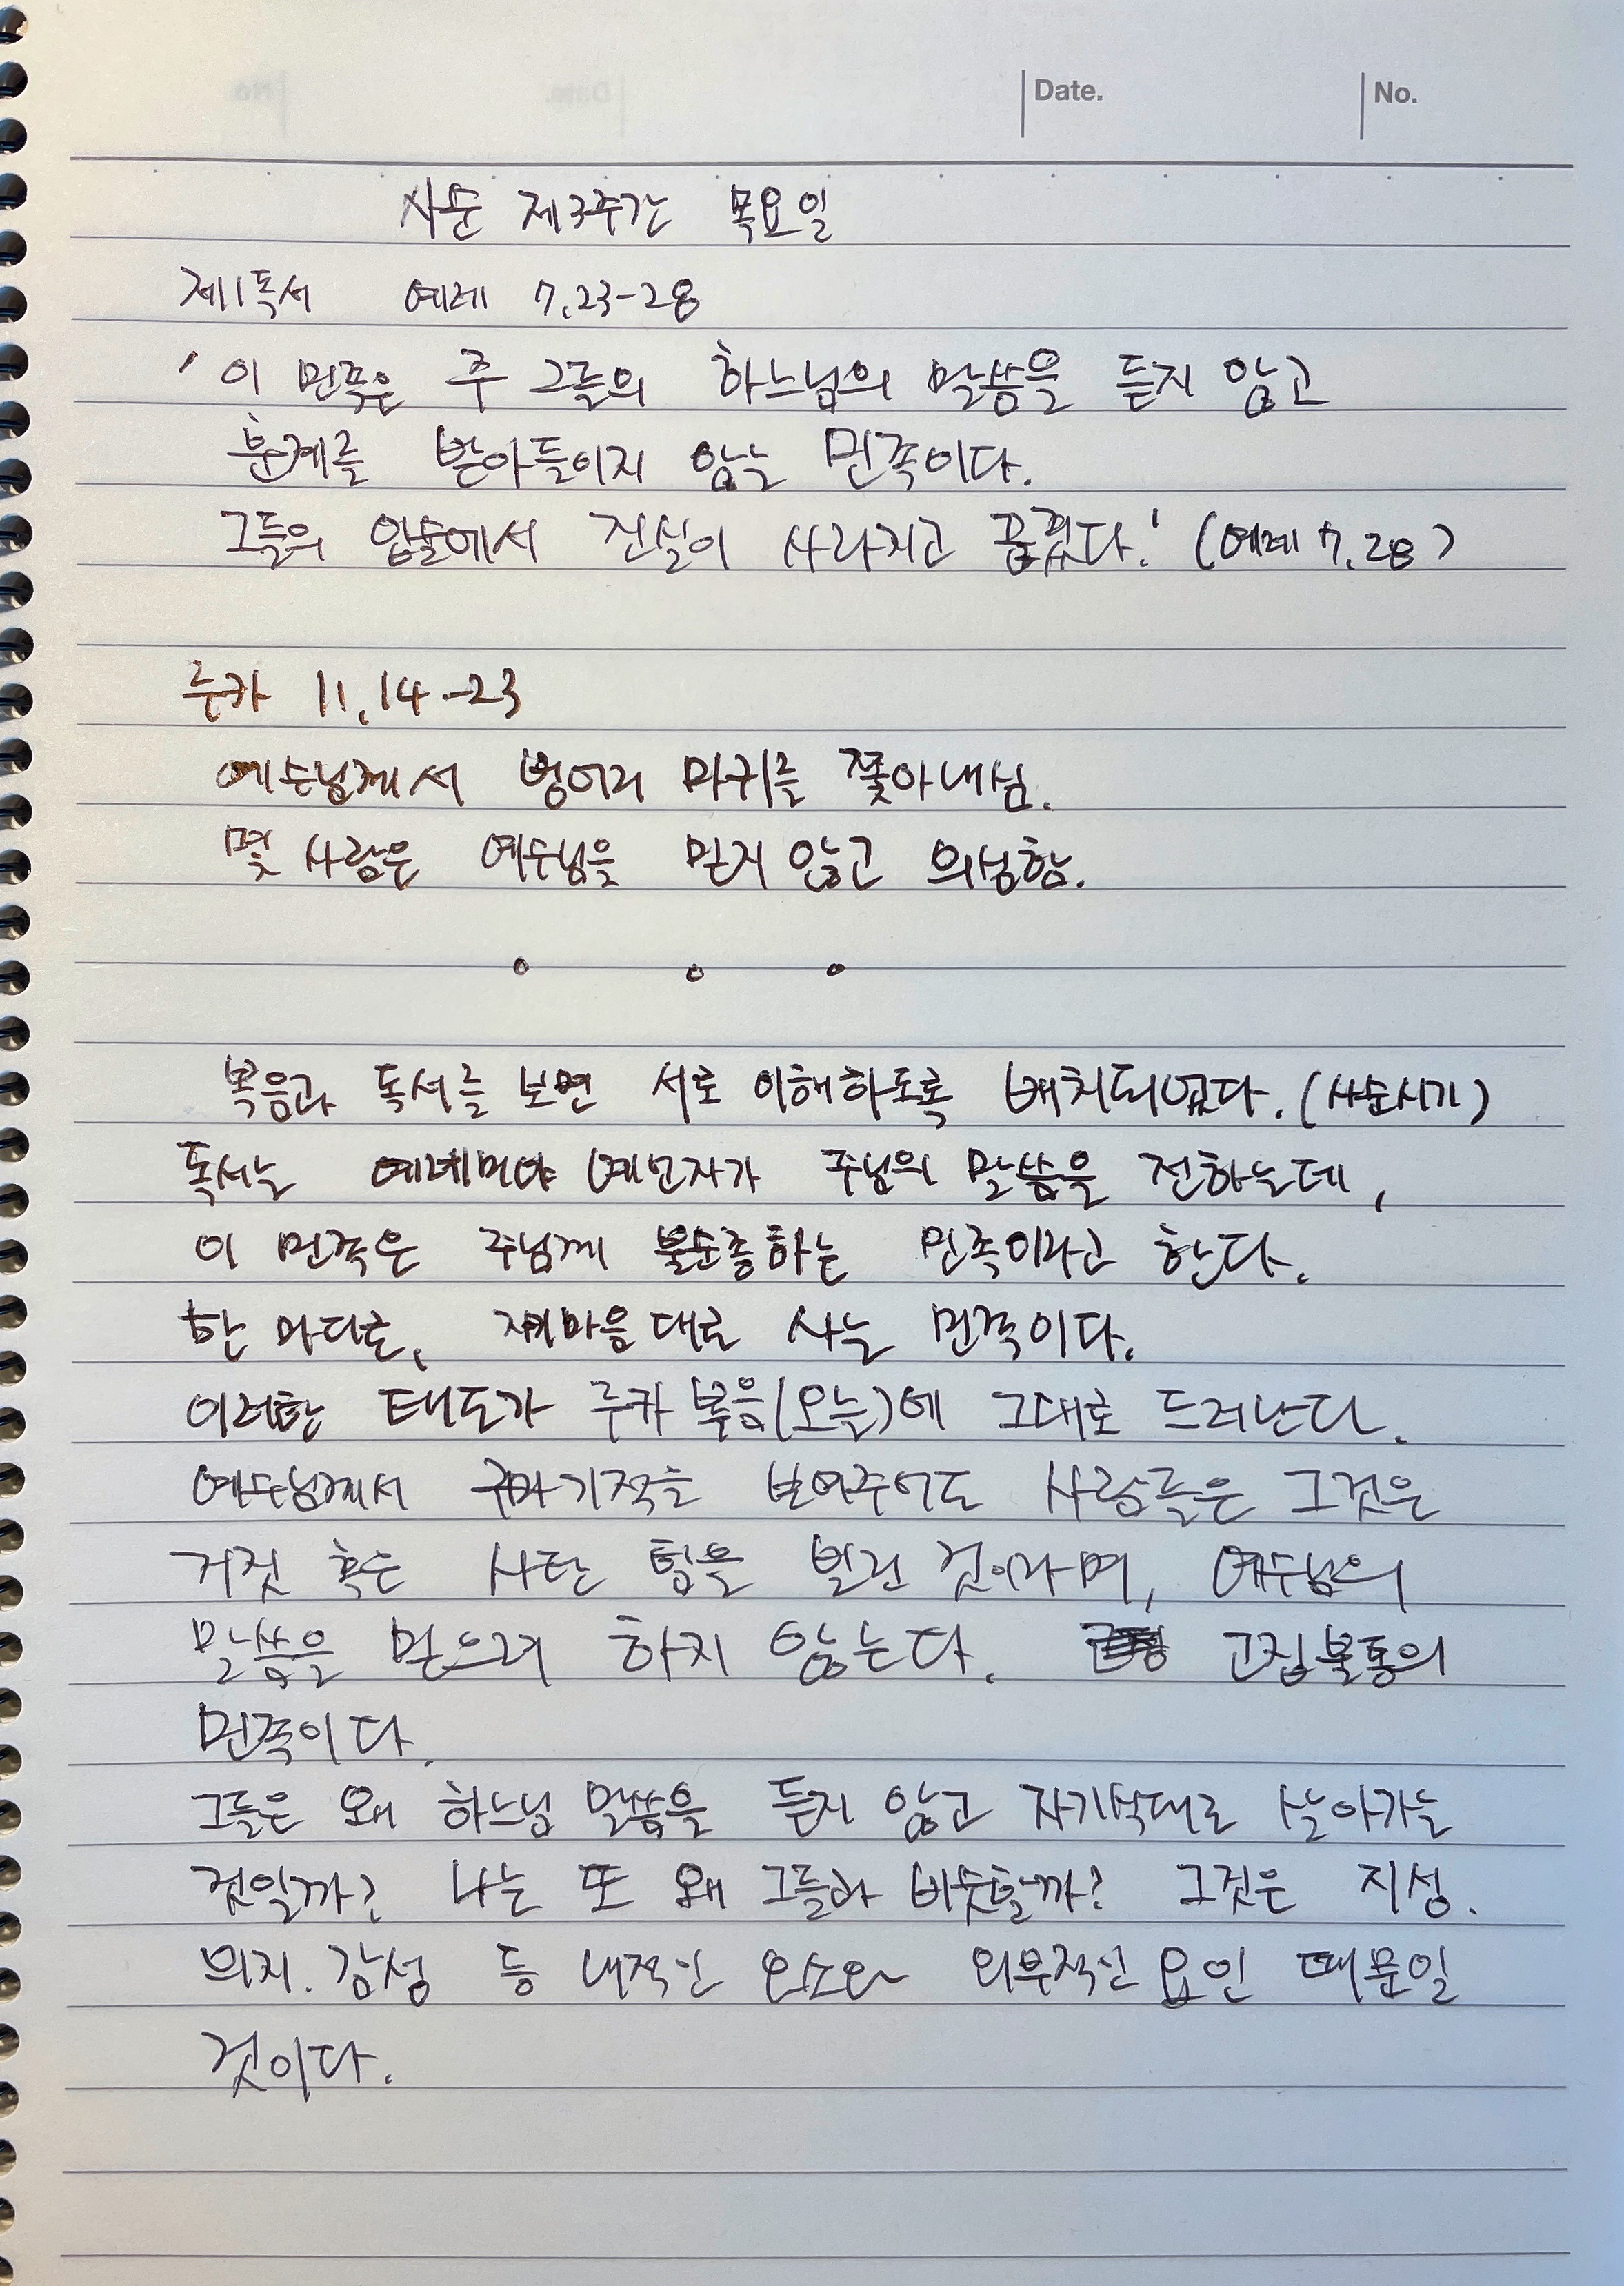 Date.
No.
사순 제3주간 목요일
제1독서 예레 7,23-28
'이 민족은 주 그들의 하느님의 말씀을 듣지 않고
훈계를 받아들이지 않는 민족이다.
그들의 입술에서 진실이 사라지고 끊겼다.' (예레 7,28)
루카 11,14-23
예수님께서 벙어리 마귀를 쫓아내심.
몇 사람은 예수님을 믿지 않고 의심함.
복음과 독서를 보면 서로 이해하도록 배치되었다. (사순시기)
독서는 예레미야 예언자가 주님의 말씀을 전하는데,
이 민족은 주님께 불순종하는 민족이라고 한다.
한 마디로, 제마음대로 사는 민족이다.
이러한 태도가 루카 복음(오늘)에 그대로 드러난다.
예수님께서 구마기적을 보여주어도 사람들은 그것은
거짓 혹은 사탄 힘을 빌린 것이라며, 예수님의
말씀을 믿으려 하지 않는다. 고집불통의
민족이다.
그들은 왜 하느님 말씀을 듣지 않고 자기식대로 살아가는
것일까? 나는 또 왜 그들과 비슷할까? 그것은 지성.
의지. 감성 등 내적인 요소와 외부적인 요인 때문일
것이다.